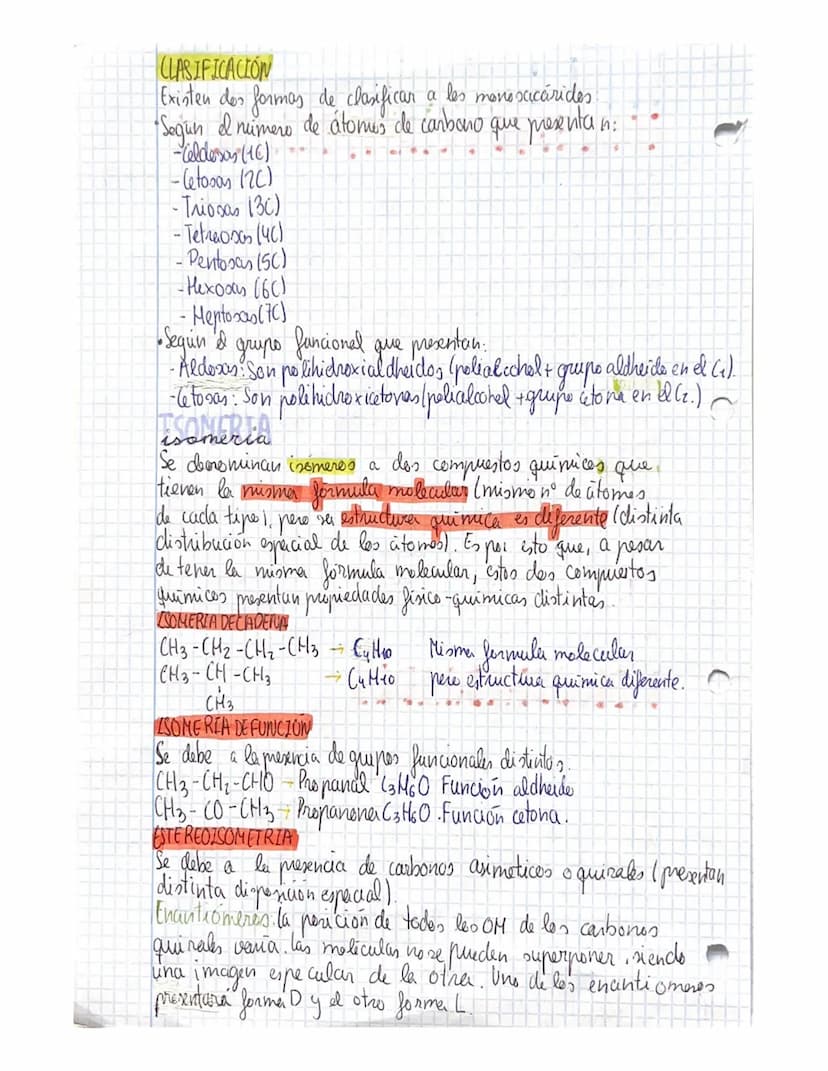 CLASIFICACIÓN
Existen dos formas de clasificar a los monosacáridos:
·Según el número de átomos de carbono que presentan:
-Celdosas (1C)
-Cetosas (2C)
-Triosas (3C)
-Tetraosas (4C)
-Pentosas (5C)
-Hexosas (6C)
-Heptosas (7C)
·Según el grupo funcional que presentan:
-Aldosas: Son polihidroxialdheidos (polialcohol + grupo aldheido en el C1).
-Cetosas: Son polihidroxicetonas (polialcohol + grupo cetona en el C2.)
ISOMERIA
isomeria
Se denominan isómeros a dos compuestos químicos que
tienen la misma fórmula molecular (mismo nº de átomos
de cada tipo), pero su estructura química es diferente (distinta
distribución espacial de los átomos). Es por esto que, a pesar
de tener la misma fórmula molecular, estos dos compuestos
químicos presentan propiedades físico-químicas distintas.
ISOMERIA DE CADENA
CH3-CH2-CH2-CH3 → C4H10 Misma formula molecular
CH3-CH-CH3 → C4H10 pero estructura química diferente.
CH3
ISOMERIA DE FUNCIÓN
Se debe a la presencia de grupos funcionales distintos.
CH3-CH2-CHO → Propanal C3H6O Función aldheido
CH3-CO-CH3 → Propanona C3H6O. Función cetona.
ESTEREOISOMETRIA
Se debe a la presencia de carbonos asimeticos o quirales (presentan
distinta disposición espacial).
Enantiómeros: la posición de todos los OH de los carbonos
quirales varia. Las moléculas no se pueden superponer, siendo
una imagen especular de la otra. Uno de los enantiomeros
presentará forma D y el otro forma L.